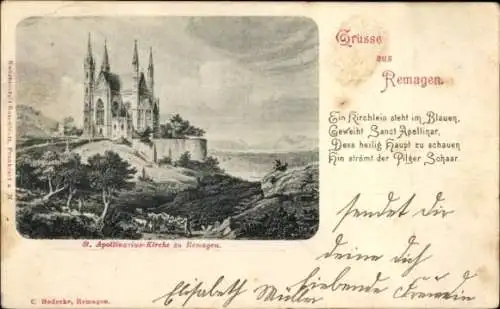 Grüsse
aus
Remagen.
Ein Kirchlein steht im Blauen,
Geweiht Sanct Apollinar,
Dess heilig Haupt zu schauen
Hin strömt der Pilger Schaar.
sendet Dir
deine Dich
liebende
Elisabeth Müller
St. Apollinarius-Kirche zu Remagen.
C. Hedecke, Remagen.